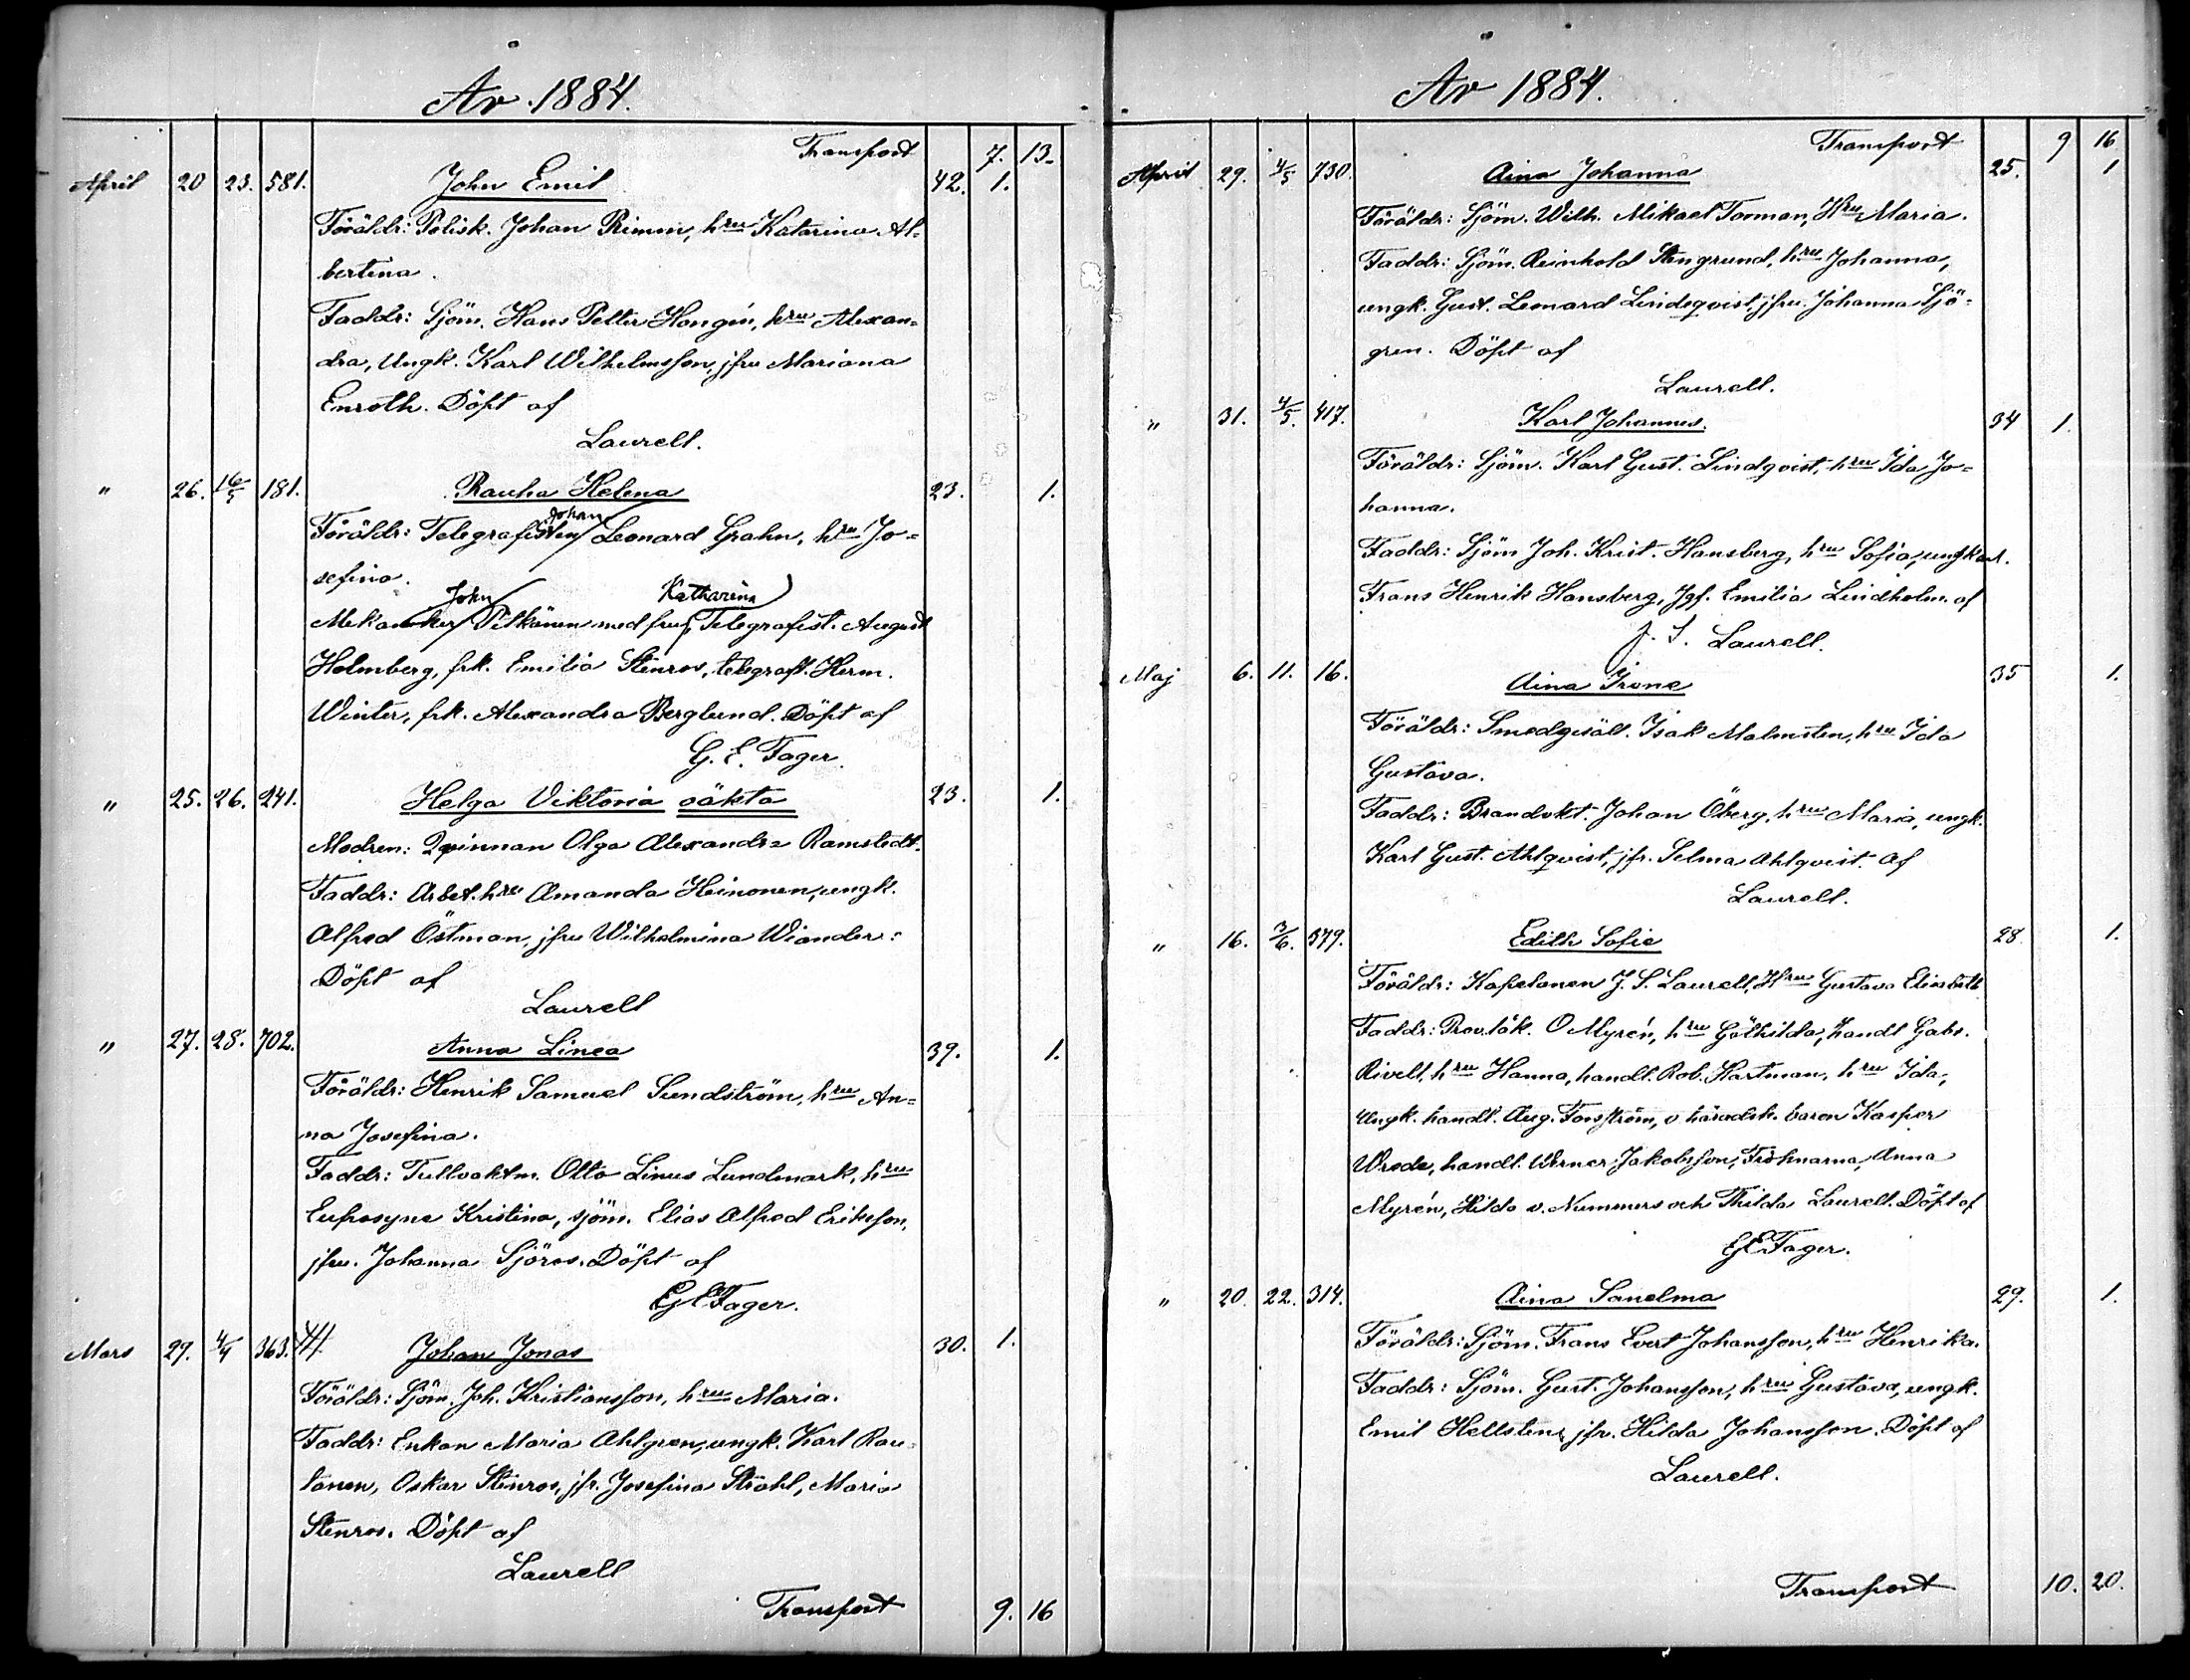 År 1884.
Transport 7. 13.
April 20 23. 581. John Emil 42. 1.
Föräldr: Polisk. Johan Rimm, hru Katarina Al-
bertina.
Faddr: Sjöm. Hans Petter Hongin, hru Alexan-
dra, Ungk. Karl Wilhelmsson, jfru Mariana
Enroth. Döpt af
Laurell.
" 26. 16/5 181. Rauha Helena 23. 1.
Johan
Föräldr: Telegrafisten Leonard Grahn, hru Jo-
sefina.
John Katharina
Mekaniker Pitkänen med fru, Telegrafist. August
Holmberg, frk. Emilia Stenros, telegraft. Herm.
Winter, frk. Alexandra Berglund. Döpt af
G. E. Fager.
" 25. 26. 241. Helga Viktoria oäkta 23. 1.
Modren: Qvinnan Olga Alexandra Ramstedt.
Faddr: Arbet. hru Amanda Heinonen, ungk.
Alfred Östman, jfru Wilhelmina Wiander:
Döpt af
Laurell
" 27. 28. 702. Anna Linea 39. 1.
Föräldr: Henrik Samuel Sundström, hru An-
na Josefina.
Faddr: Tullvaktm. Otto Linus Lundmark, hru
Eufrosyne Kristina, sjöm. Elias Alfred Eriksson,
jfru. Johanna Sjöros. Döpt af
G E Fager.
Mars 29. 4/4 363. Johan Jonas 30. 1.
Föräldr: Sjöm. Joh. Kristiansson, hru Maria.
Faddr: Enkan Maria Ahlgren, ungk. Karl Rau-
tanen, Oskar Stenros, jfr. Josefina Stråhl, Maria
Stenros. Döpt af
Laurell
Transport 9. 16
År 1884.
Transport 9 16
April 29. 4/5 730. Aina Johanna 25. 1
Föräldr: Sjöm. Wilh. Mikael Torman, Hru Maria.
Faddr: Sjöm. Reinhold Stengrund, hru Johanna,
ungk. Gust. Leonard Lindeqvist, jfru. Johanna Sjö-
gren. Döpt af
Laurell.
" 31. 4/5. 417. Karl Johannes. 34 1.
Föräldr: Sjöm. Karl Gust. Lindqvist, hru Ida Jo-
hanna.
Faddr: Sjöm Joh. Krist. Hansberg, hru Sofia, ungkarl.
Frans Henrik Hansberg, Jgf. Emilia Lindholm. af
J. S. Laurell.
Maj 6. 11. 16. Aina Irene 35 1.
Föräldr: Smedgesäll. Isak Malmsten, hru Ida
Gustava.
Faddr: Brandvkt. Johan Öberg, hru Maria, ungk.
Karl Gust. Ahlqvist, jfr. Selma Ahlqvist. af
Laurell.
" 16. 3/6. 579. Edith Sofie 28 1.
Föräldr: Kapelanen J. S. Laurell, Hru Gustava Elisabeth
Faddr: Prov. läk. O Myrén, hru Göthilda, handl Gabr.
Rivell, hru Hanna, handl. Rob. Hartman, hru Ida,
Ungk. handl. Aug. Forsström, v häradsh. baron Kasper
Wrede, handl. Werner Jakobsson, Fröknarna, Anna
Myrén, Hilda v. Nummers och Thilda Laurell. Döpt af
G E Fager.
" 20. 22. 314. Aina Sanelma 29. 1.
Föräldr: Sjöm. Frans Evert Johansson, hru Henrika.
Faddr: Sjöm. Gust. Johansson, hru Gustava, ungk.
Emil Hellsten, jfr. Hilda Johansson. Döpt af
Laurell.
Transport 10. 20.